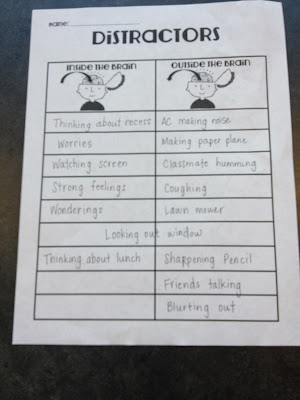 Name:
DISTRACTORS
INSIDE THE BRAIN OUTSIDE THE BRAIN
Thinking about recess AC making noise
Worries Making paper plane
Watching screen Classmate humming
Strong feelings Coughing
Wonderings Lawn mower
Looking out window
Thinking about lunch Sharpening Pencil
Friends talking
Blurting out